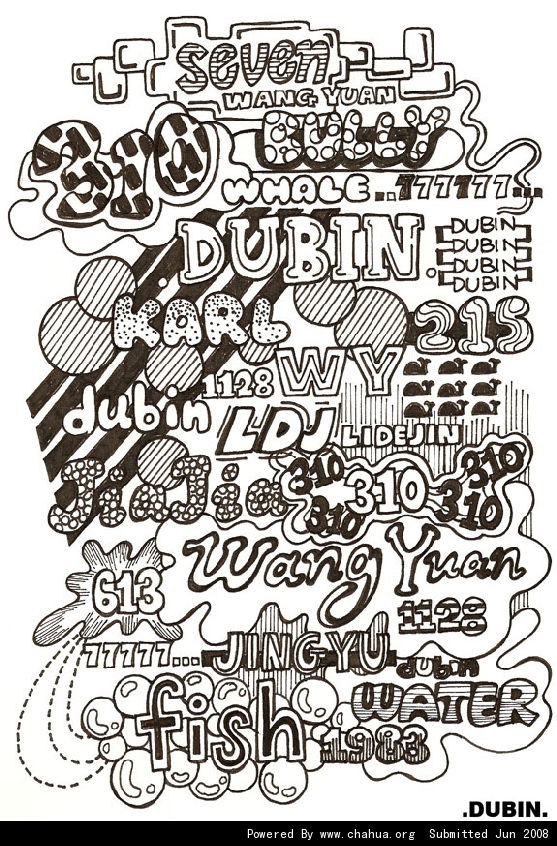 seven
WANG YUAN
310 BULLY
WHALE...777777...
DUBIN.
DUBIN
DUBIN
DUBIN
DUBIN
KARL 215
1128 WY
dubin
LDJ LIDEJIN
JiaJia 310 310 310 310 310
Wang Yuan
613
1128
77777... JINGYU dubin
fish WATER
1983
.DUBIN.
Powered By www.chahua.org Submitted Jun 2008